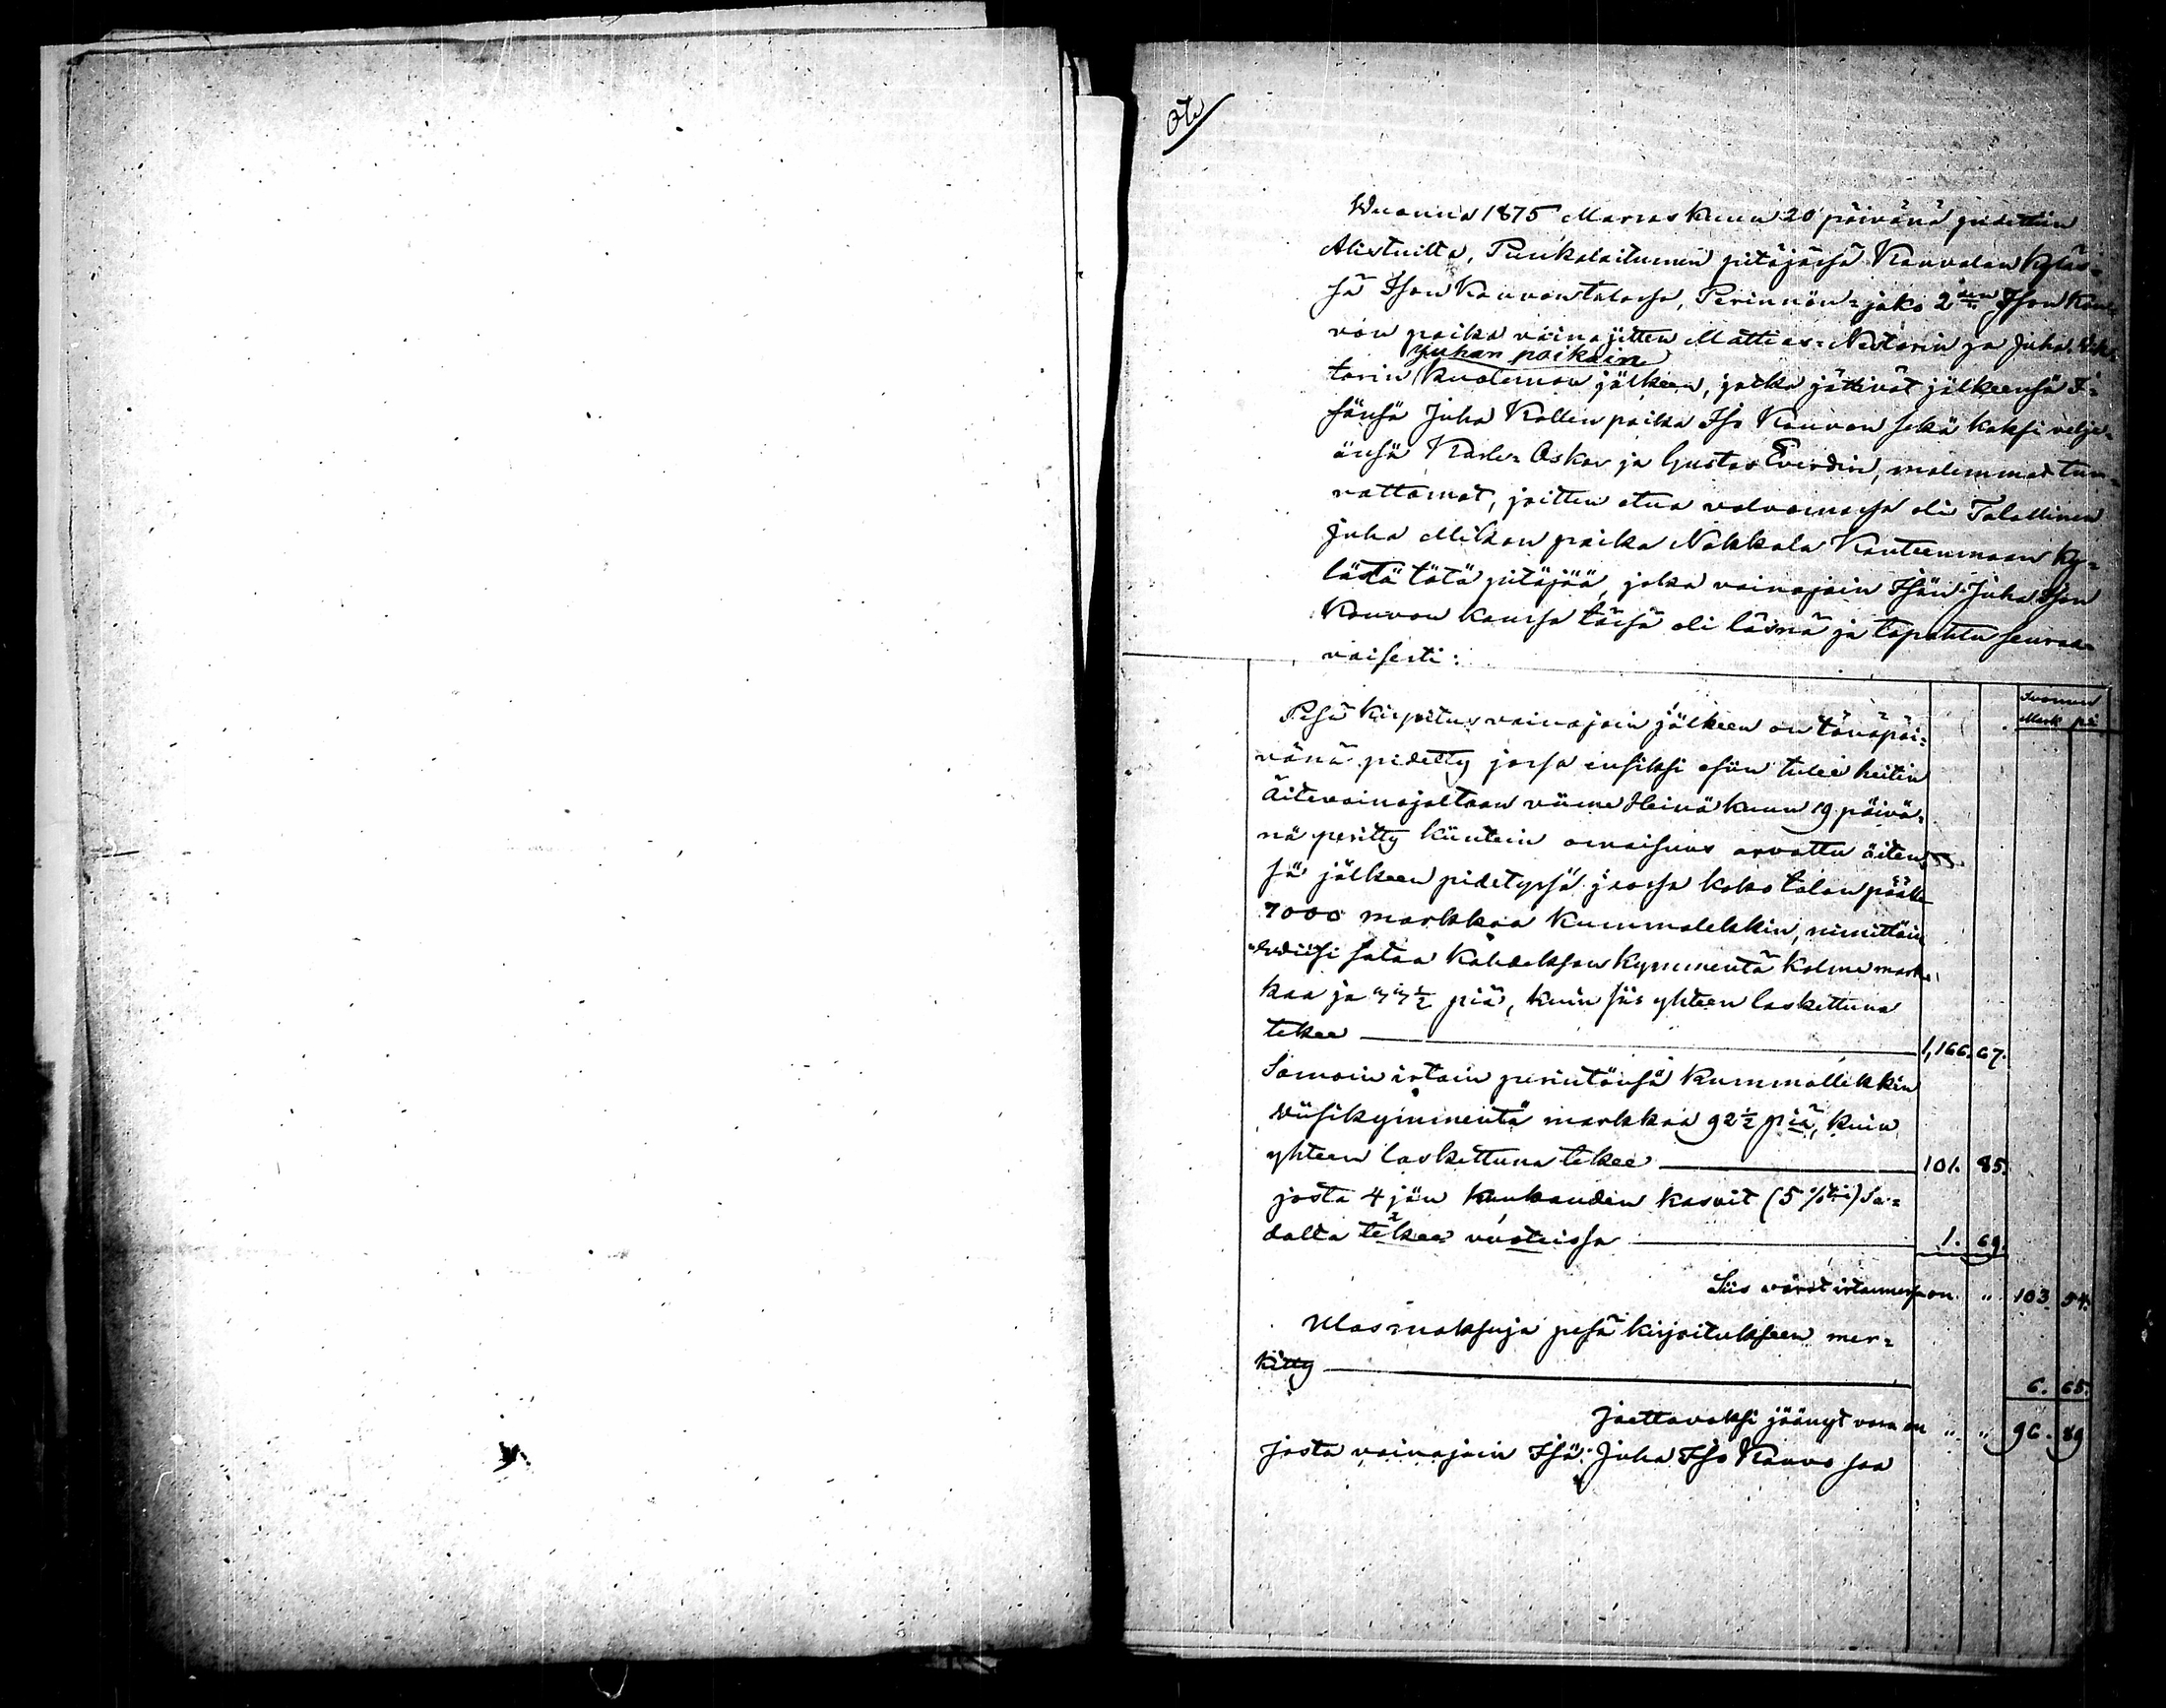 Ote
Wuonna 1875 Marraskuun 20 päivänä pidettiin
Alistuilta, Punkalaitumen pitäjässä Kanvalan kyläs=
sä Ison Kouvon talossa, Perinnön=jako 2den Ison Kou=
von poika vainajitten Mattias=Nestorin ja Juha Vik=
Juhan poikain
torin kuoleman jälkeen, jotka jättivät jälkeensä I=
sänsä Juha Kallen poika Iso Kouvon sekä kaksi velje=
änsä Karle=Oskar ja Gustav Everdin, molemmat tur=
vattomat, joitten etua valvomassa oli Talollinen
Juha Mikon poika Nokkala Kanteenmaan ky=
lästä tätä pitäjää, joka vainajain Isän Juha Ison
Kouvon kanssa tässä oli läsnä ja tapahtu seuraa=
vaisesti:
Suomen
Mark piä
Pesä kirjoitus vainajain jälkeen on tänäpäi=
vänä pidetty jossa ensiksi esiin tulee heitin
äitevainajaltaan viime Heinäkuun 19 päivä=
nä peritty kiintein omaisuus arvattu äiten=
sä jälkeen pidetyssä jaossa koko talon päälle
7000 markkaa kummalekkin, nimittäin
Wiisi sataa kahdeksan kymmentä kolme mark=
kaa ja 33½ piä, kuin siis yhteen laskettuna
tekee 1,166. 67.
Samoin irtain perintönsä kummallekkin
Viisikymmentä markkaa 92½ piä, kuin
yhteen laskettuna tekee 101. 85.
josta 4jän kuukauden kasvit (5 %tia) Sa=
dalta tekee vuoteissa 1. 69.
Siis varat irtaimessa on " 103. 54.
Ulosmaksuja pesä kirjoitukseen mer=
kitty 6. 65.
Jaettavaksi jäänyt vara on " " 96. 89
josta vainajain Isä Juha Iso Kouvo saa